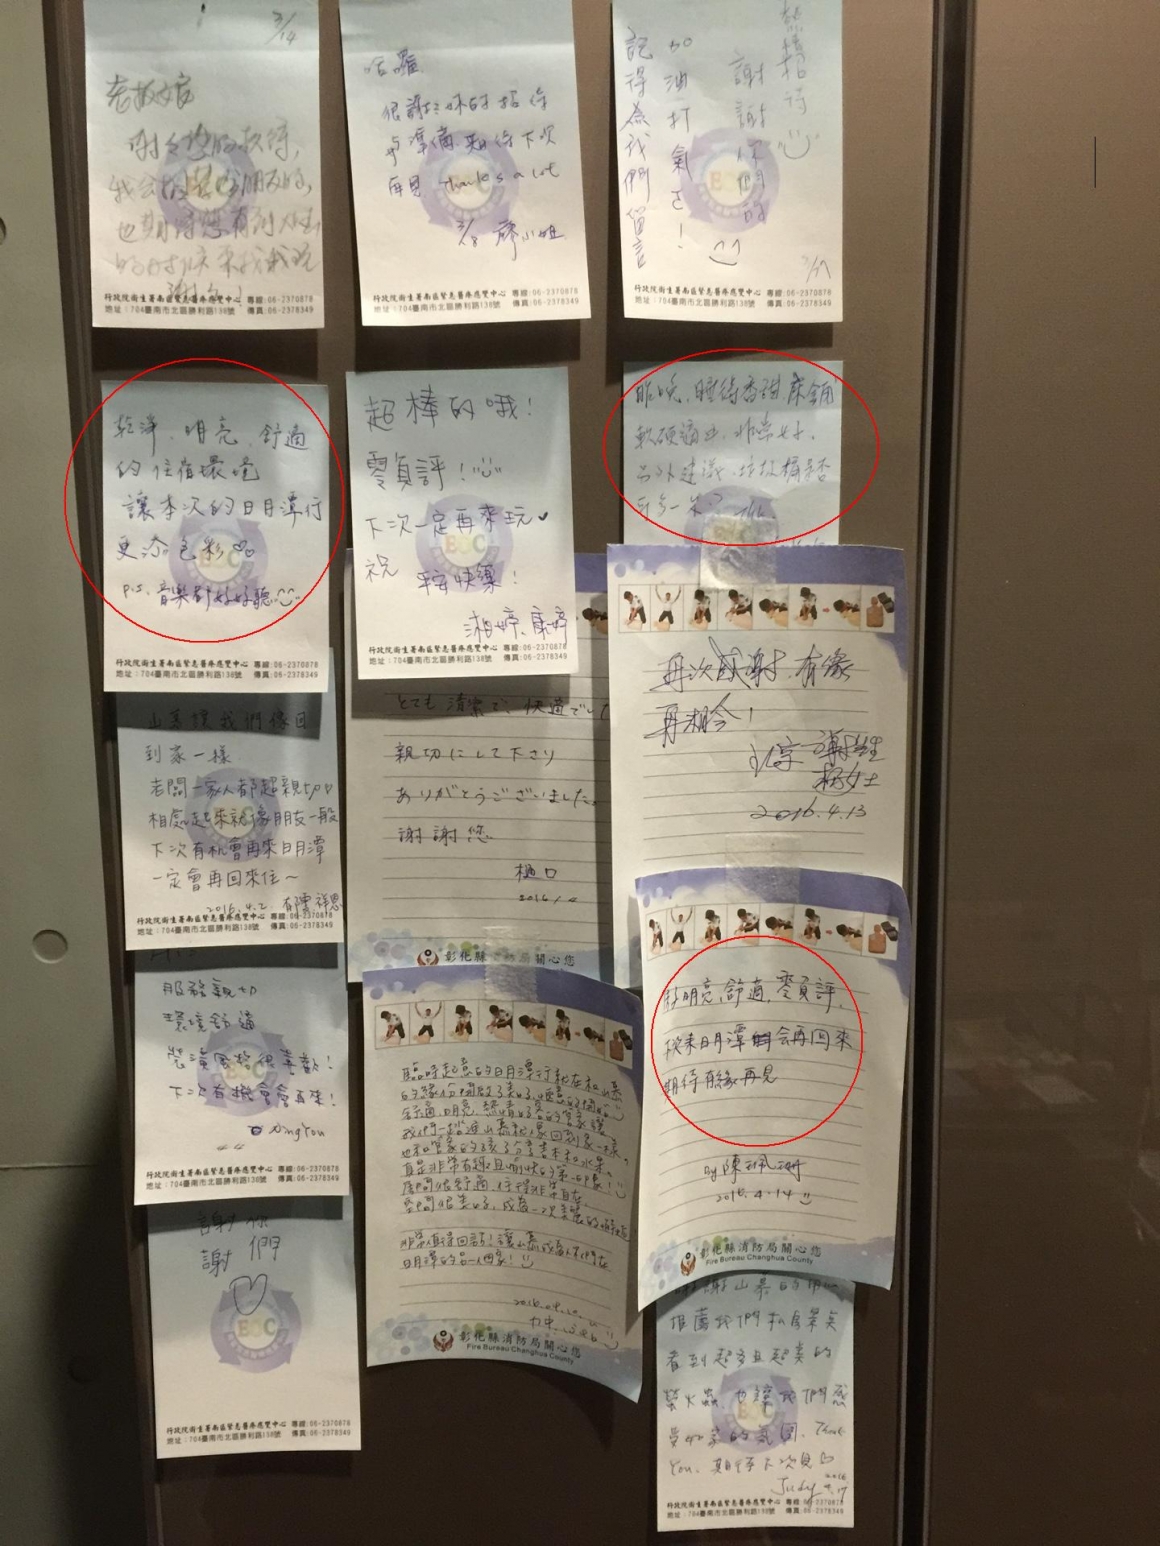 3/14
老板娘
謝謝您的款待,
哈囉
很謝謝妳的招待
再見 Thanks a lot
3/8 廖小姐
熱情招待
謝謝你們的
加油打氣!
記得為我們留言
行政院衛生署南區緊急醫療應變中心 專線:06-2370878
地址:704臺南市北區勝利路138號 傳真:06-2378349
行政院衛生署南區緊急醫療應變中心 專線:06-2370878
地址:704臺南市北區勝利路138號 傳真:06-2378349
行政院衛生署南區緊急醫療應變中心 專線:06-2370878
地址:704臺南市北區勝利路138號 傳真:06-2378349
乾淨、明亮、舒適
的住宿環境
讓本次的日月潭行
更添色彩
P.S. 音樂都好好聽
行政院衛生署南區緊急醫療應變中心 專線:06-2370878
地址:704臺南市北區勝利路138號 傳真:06-2378349
超棒的哦!
零負評!
下次一定再來玩
祝 平安快樂!
湘婷、康婷
行政院衛生署南區緊急醫療應變中心 專線:06-2370878
地址:704臺南市北區勝利路138號 傳真:06-2378349
昨晚,睡得香甜,床鋪
軟硬適中,非常好,
另外建議,垃圾桶是否
可多一
山慕讓我們像回
到家一樣
老闆一家人都超親切
相處起來就像朋友一般
下次有機會再來日月潭
一定會再回來住~
2016.4.2
行政院衛生署南區緊急醫療應變中心 專線:06-2370878
地址:704臺南市北區勝利路138號 傳真:06-2378349
とても 清潔で、快適でし
親切にして下さり
ありがとうございました。
謝謝您
樋口
2016
彰化縣消防局關心您
再次感謝,有緣
再相會!
2016.4.13
服務親切
環境舒適
裝潢風格很喜歡!
下次有機會會再來!
XingYou
4.4
行政院衛生署南區緊急醫療應變中心 專線:06-2370878
地址:704臺南市北區勝利路138號 傳真:06-2378349
臨時起意的日月潭行就在和山慕
我們一踏進山慕就像回到家一樣。
真是非常有緣且愉快的第一印象!
房間很舒適,住得非常自在,
非常值得回訪!讓山慕成為人們在
日月潭的另一個家!
彰化縣消防局關心您
Fire Bureau Changhua County
明亮,舒適,零負評,
來日月潭 会再回來
期待有緣再見
by 陳珮珊
2016.4.14
彰化縣消防局關心您
Fire Bureau Changhua County
謝謝你們
行政院衛生署南區緊急醫療應變中心 專線:06-2370878
地址:704臺南市北區勝利路138號 傳真:06-2378349
謝謝山慕的
推薦我們私房景點
看到超多且超美的
螢火蟲,也讓我們感
受如家的氛圍. Thank
You. 期待下次見
Judy 2016 4.17
行政院衛生署南區緊急醫療應變中心 專線:06-2370878
地址:704臺南市北區勝利路138號 傳真:06-2378349